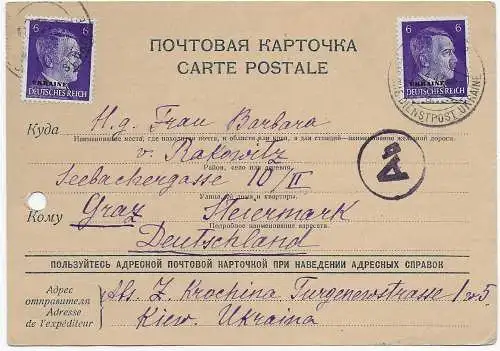 6 6
UKRAINE
DEUTSCHES REICH
ПОЧТОВАЯ КАРТОЧКА
CARTE POSTALE
6 6
UKRAINE
DEUTSCHES REICH
DIENSTPOST UKRAINE
Куда H. g. Frau Barbara
Наименование места, где находится почта, и области или края, а для станций—наименование железной дороги.
v. Rakowitz
Район, село или деревня.
Seebachergasse 10/II
Улица, № дома и квартиры.
Кому Graz Steiermark
Подробное наименование адресата.
Deutschland
ПОЛЬЗУЙТЕСЬ АДРЕСНОЙ ПОЧТОВОЙ КАРТОЧКОЙ ПРИ НАВЕДЕНИИ АДРЕСНЫХ СПРАВОК
Адрес
отправителя
Adresse
de l'expéditeur
Abs. Z. Krochina Turgenewstrasse
Kiew. Ukraina